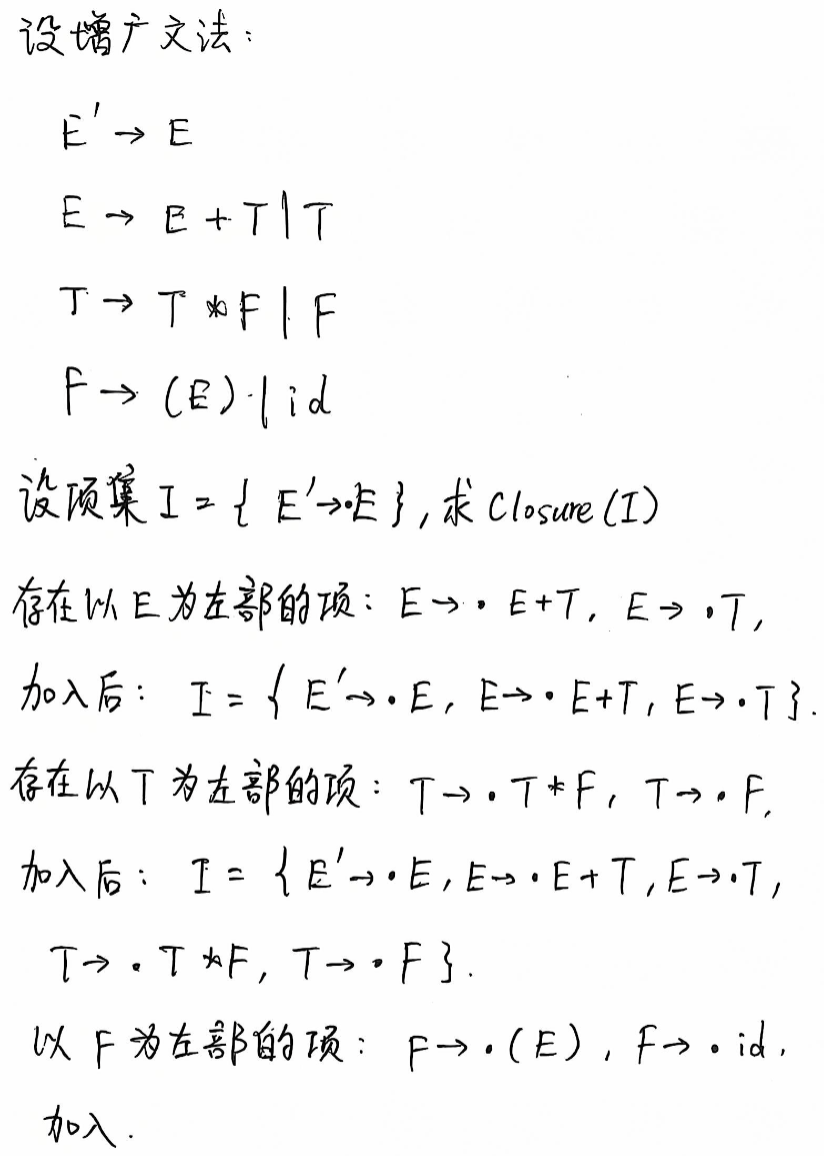 设增广文法:
E' → E
E → E + T | T
T → T * F | F
F → (E) | id
设项集 I = { E'→·E }, 求 Closure(I)
存在以 E 为左部的项: E → · E+T, E → ·T,
加入后: I = { E'→·E, E→·E+T, E→·T }.
存在以 T 为左部的项: T → · T * F, T → · F,
加入后: I = { E'→·E, E→·E+T, E→·T,
T→·T *F, T→·F }.
以 F 为左部的项: F→·(E), F→·id,
加入.